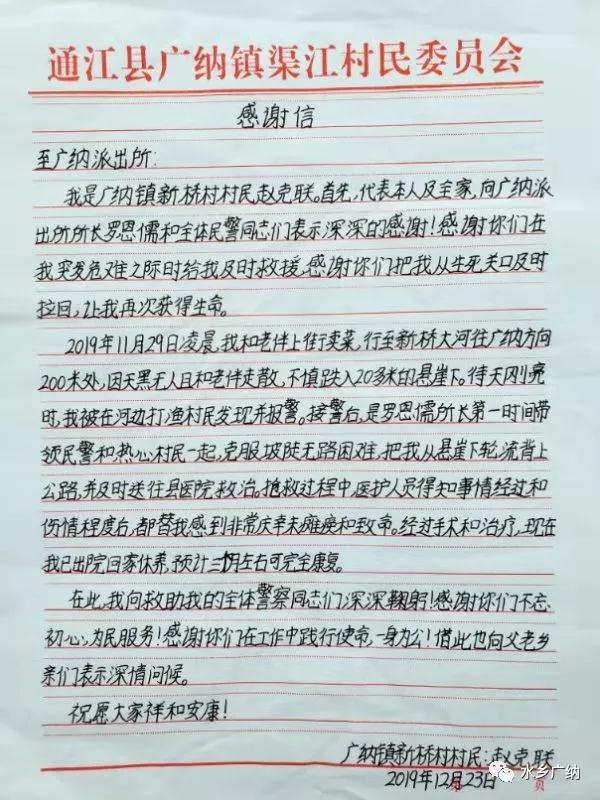 通江县广纳镇渠江村民委员会
感谢信
至广纳派出所:
我是广纳镇新桥村村民赵克联。首先,代表本人及全家,向广纳派
出所所长罗恩儒和全体民警同志们表示深深的感谢!感谢你们在
我突发危难之际时给我及时救援,感谢你们把我从生死关口及时
拉回,让我再次获得生命。
2019年11月29日凌晨,我和老伴上街卖菜,行至新桥大河往广纳方向
200米处,因天黑无人且和老伴走散,不慎跌入20多米的悬崖下。待天刚亮
时,我被在河边打渔村民发现并报警。接警后,是罗恩儒所长第一时间带
领民警和热心村民一起,克服坡陡无路困难,把我从悬崖下轮流背上
公路,并及时送往县医院救治。抢救过程中,医护人员得知事情经过和
伤情程度后,都替我感到非常庆幸未瘫痪和致命。经过手术和治疗,现在
我已出院回家休养,预计三月左右可完全康复。
在此,我向救助我的全体警察同志们深深鞠躬!感谢你们不忘
初心,为民服务!感谢你们在工作中践行使命,一身为公!借此也向父老乡
亲们表示深情问候。
祝愿大家祥和安康!
广纳镇新桥村村民:赵克联
2019年12月23日
页
水乡广纳